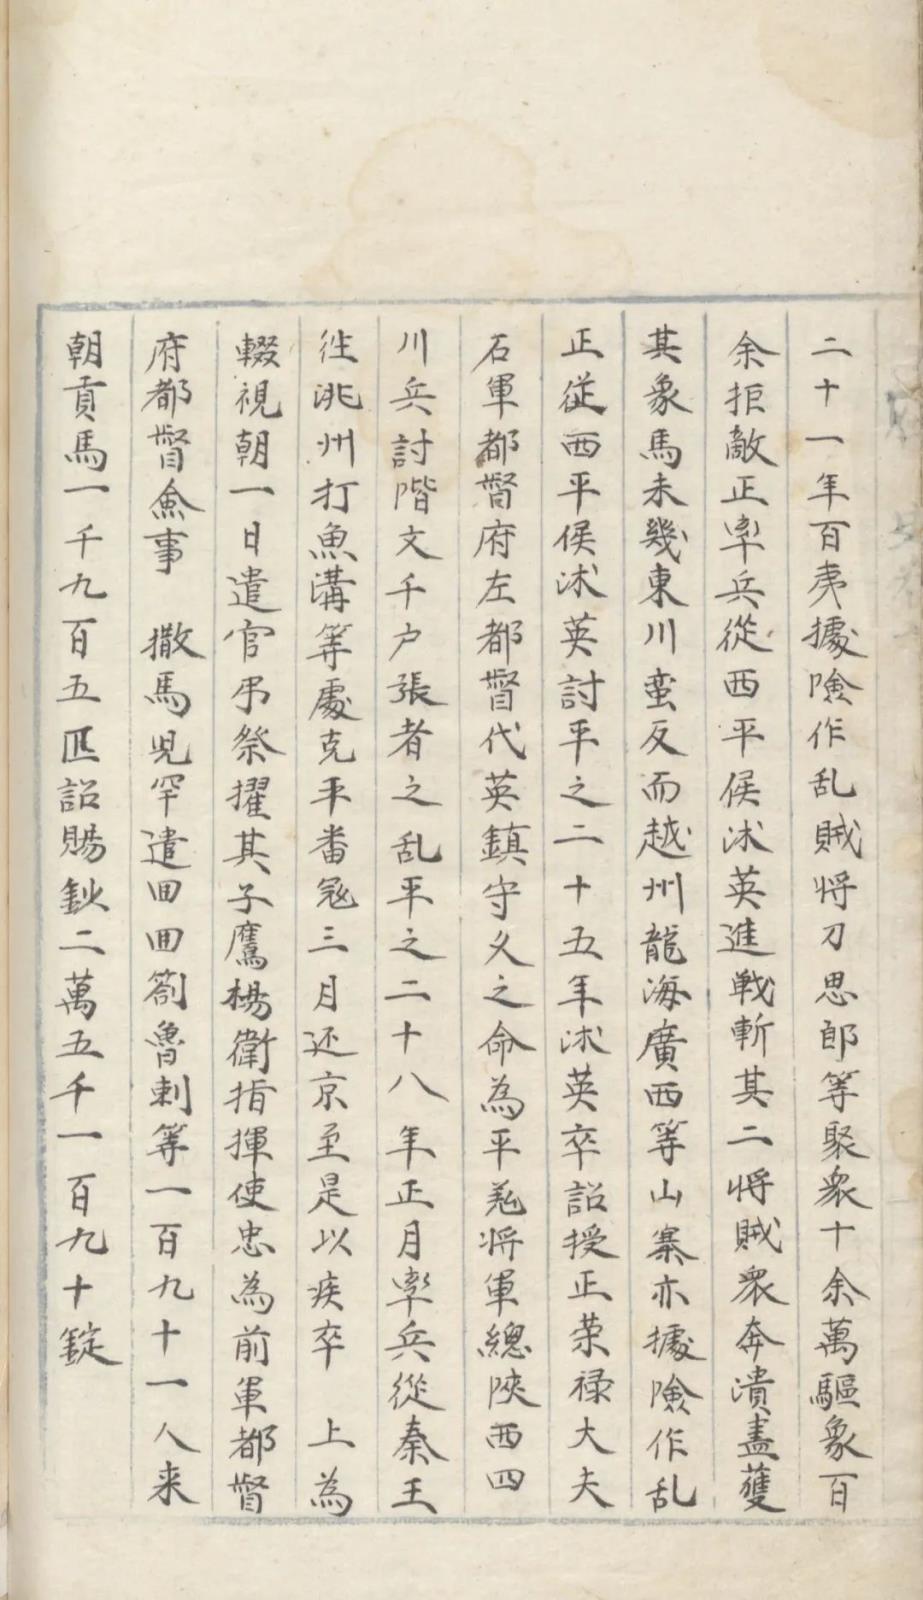 二十一年百夷據險作乱賊将刀思郎等聚衆十余萬驅象百
余拒敵正率兵從西平侯沐英進戰斬其二将賊衆奔潰盡獲
其象馬未幾東川蛮反而越州龍海廣西等山寨亦據險作乱
正從西平侯沐英討平之二十五年沐英卒詔授正荣禄大夫
右軍都督府左都督代英鎮守久之命為平羗将軍總陝西四
川兵討階文千户張者之乱平之二十八年正月率兵從秦王
徃洮州打魚溝等處克平畨冦三月还京至是以疾卒 上為
輟視朝一日遣官弔祭擢其子鷹楊衛指揮使忠為前軍都督
府都督僉事 撒馬児罕遣囬囬劄魯剌等一百九十一人来
朝貢馬一千九百五匹詔賜鈔二萬五千一百九十錠